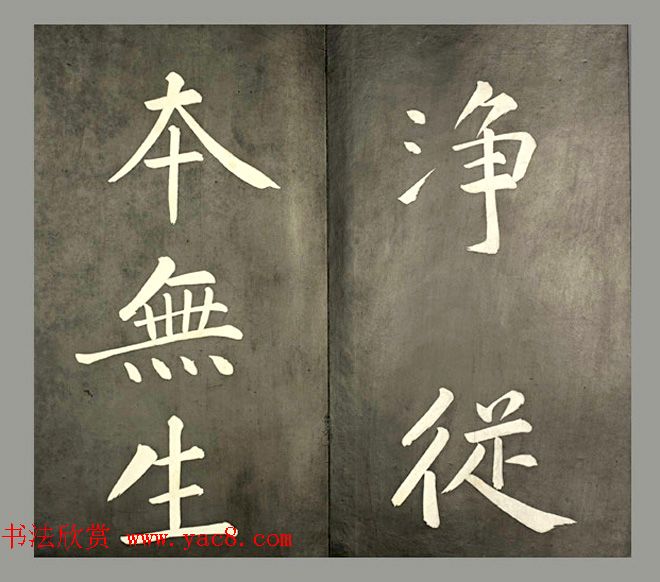 净從
本無生
书法欣赏 www.yac8.com